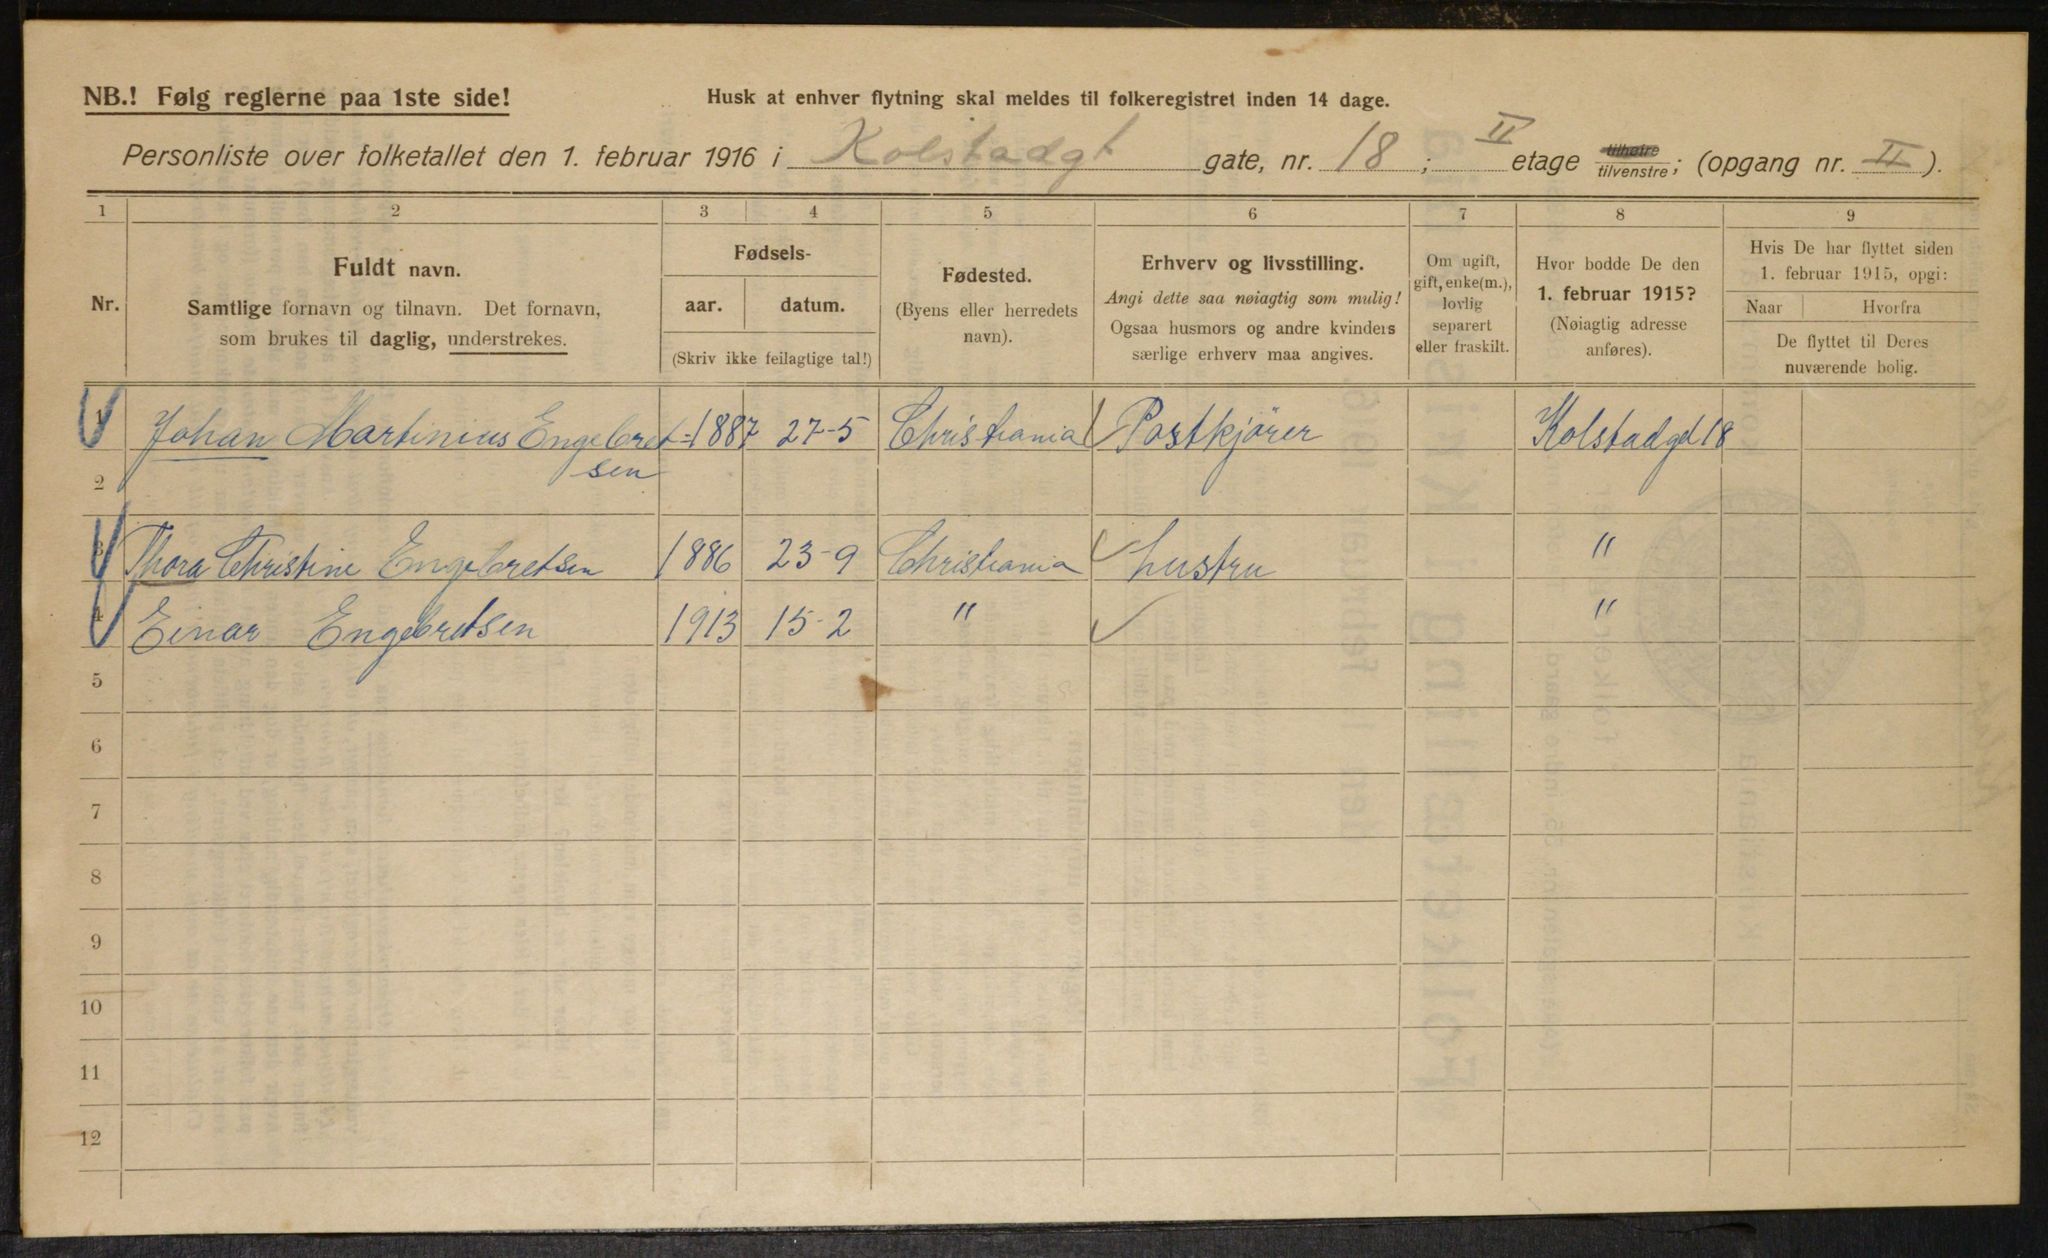 NB.! Følg reglerne paa 1ste side!
Husk at enhver flytning skal meldes til folkeregistret inden 14 dage.
Personliste over folketallet den 1. februar 1916 i Kolstadgt gate, nr. 18; II etage tilhøire tilvenstre; (opgang nr. II).
1 2 3 4 5 6 7 8 9
Nr.
Fuldt navn.
Samtlige fornavn og tilnavn. Det fornavn,
som brukes til daglig, understrekes.
Fødsels-
aar. datum.
(Skriv ikke feilagtige tal!)
Fødested.
(Byens eller herredets
navn).
Erhverv og livsstilling.
Angi dette saa nøiagtig som mulig!
Ogsaa husmors og andre kvinders
særlige erhverv maa angives.
Om ugift,
gift, enke(m.),
lovlig
separert
eller fraskilt.
Hvor bodde De den
1. februar 1915?
(Nøiagtig adresse
anføres).
Hvis De har flyttet siden
1. februar 1915, opgi:
Naar Hvorfra
De flyttet til Deres
nuværende bolig.
1 Johan Martinius Engebret= 1887 27-5 Christiania Postkjører Kolstadgd 18
2 sen
3 Thora Christine Engebretsen 1886 23-9 Christiania hustru "
4 Einar Engebretsen 1913 15-2 " "
5
6
7
8
9
10
11
12